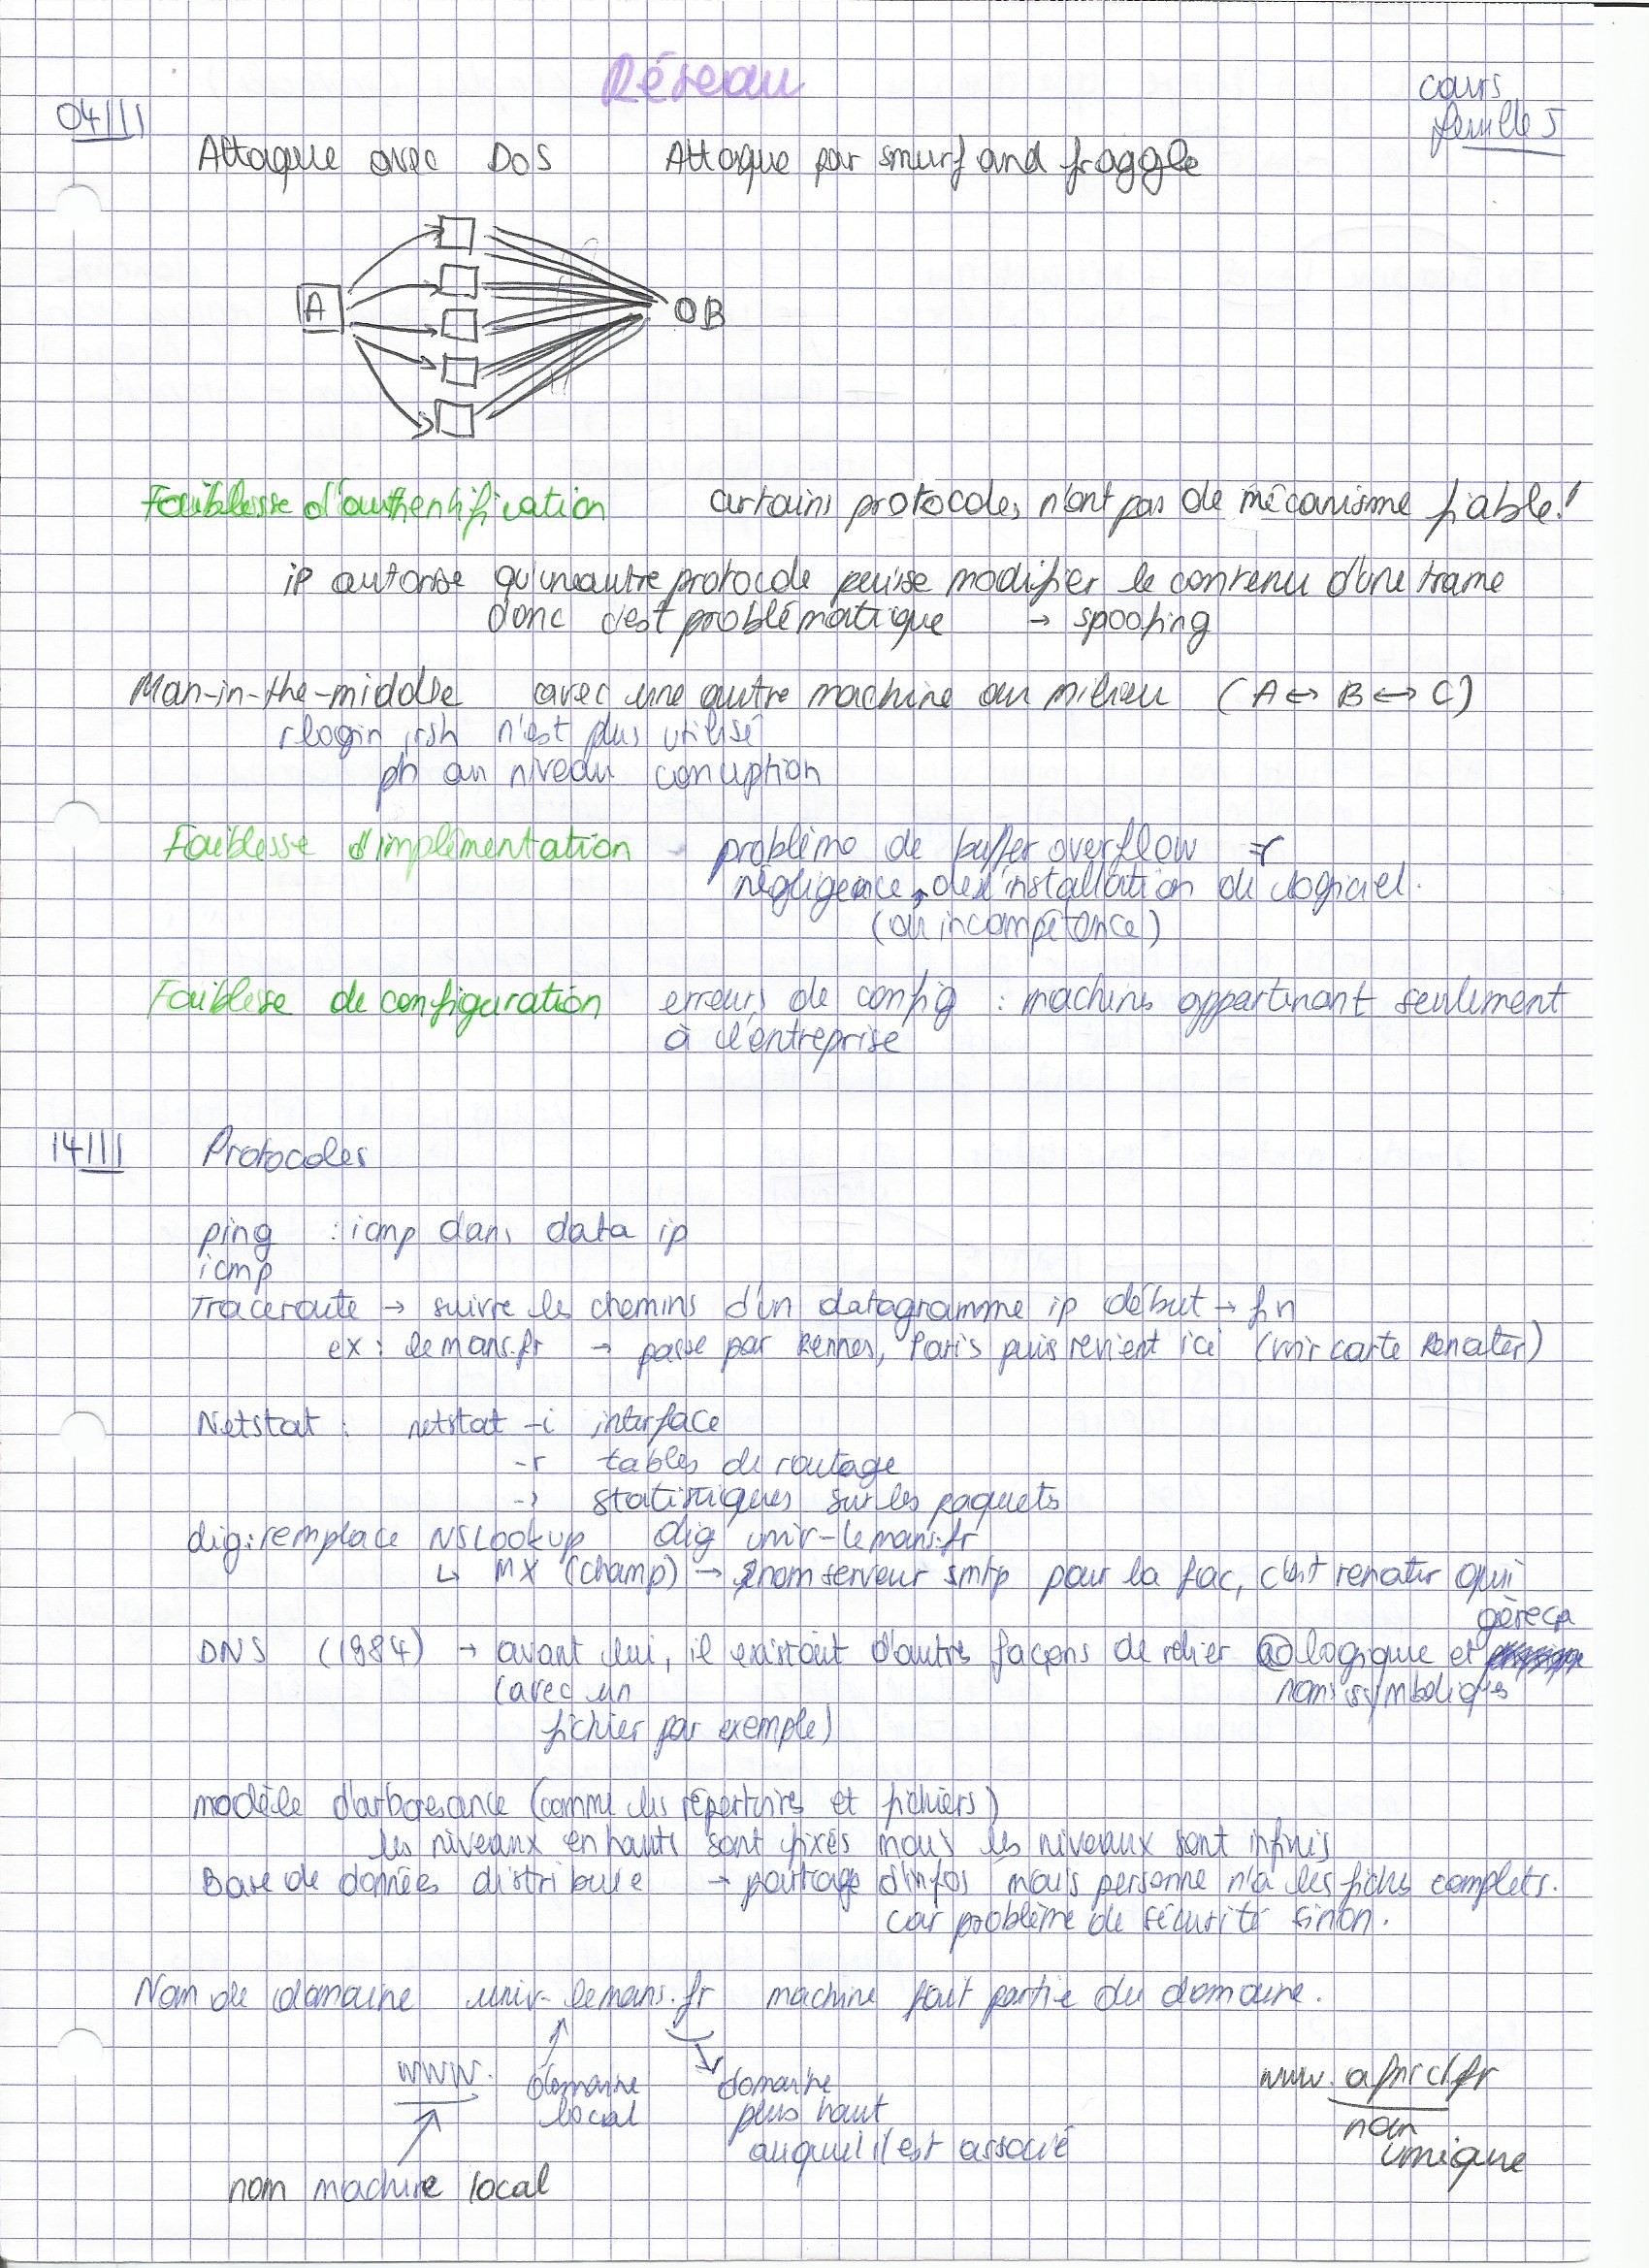 Réseau
cours
feuille 5
04/11
Attaque avec DoS Attaque par smurf and fraggle
A
B
Faiblesse d'authentification certains protocoles n'ont pas de mécanisme fiable!
ip autorise qu'un autre protocole puisse modifier le contenu d'une trame
donc c'est problématique → spoofing
Man-in-the-middle avec une autre machine au milieu (A ↔ B ↔ C)
rlogin, rsh n'est plus utilisé
pb au niveau corruption
Faiblesse d'implémentation problème de buffer overflow
négligence de l'installation de logiciel.
(ou incompétence)
Faiblesse de configuration erreurs de config : machines appartenant seulement
à l'entreprise
14/11 Protocoles
ping : icmp dans data ip
icmp
Traceroute → suivre les chemins d'un datagramme ip début → fin
ex : lemans.fr → passe par Rennes, Paris puis revient ici (voir carte Renater)
Netstat : netstat -i interface
-r tables de routage
-s statistiques sur les paquets
dig : remplace NSLookup dig univ-lemans.fr
↳ MX (champ) → nom serveur smtp pour la fac, c'est renater qui
gère ça
DNS (1984) → avant lui, il existait d'autres façons de relier @ logique et
(avec un noms symboliques
fichier par exemple)
modèle d'arborescance (comme les répertoires et fichiers)
les niveaux en hauts sont fixés mais les niveaux sont infinis
Base de données distribuée → partage d'infos mais personne n'a les fichs complets.
car problème de sécurité sinon.
Nom de domaine univ-lemans.fr machine fait partie du domaine.
www. domaine domaine www.afnic.fr
local plus haut nom
auquel il est associé unique
nom machine local